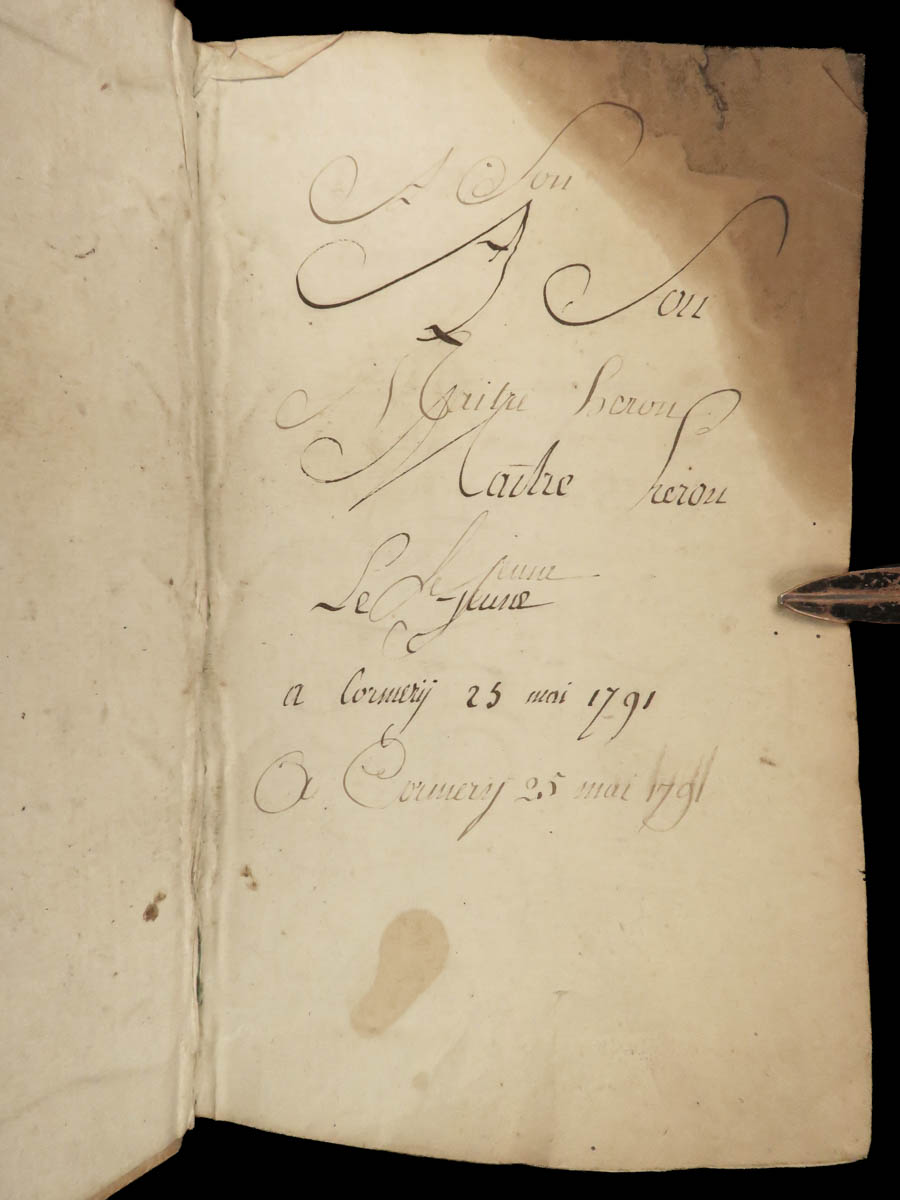 A Son
A Son
Maitre heron
Maître heron
le jeune
Le jeune
a Cormerij 25 mai 1791
A Cormerij 25 mai 1791